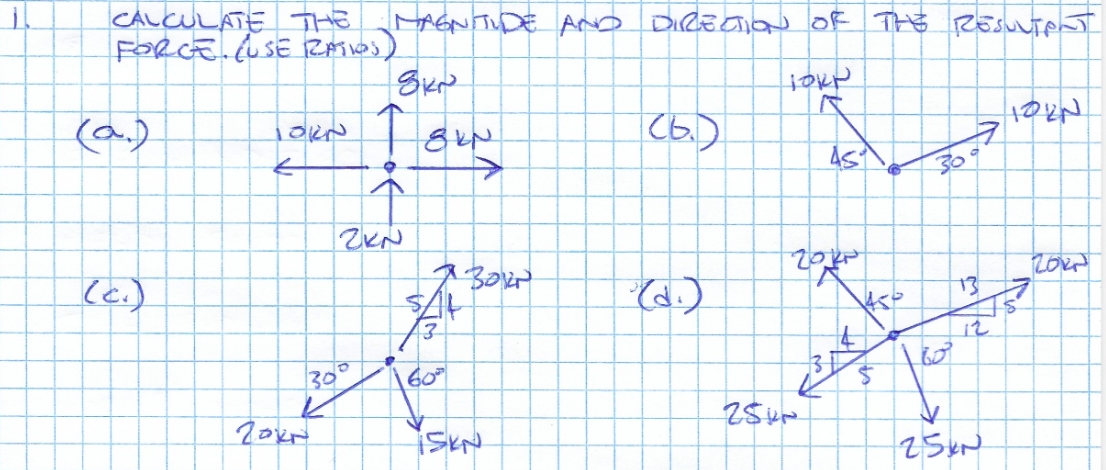 1. CALCULATE THE MAGNITUDE AND DIRECTION OF THE RESULTANT
FORCE. (USE RATIOS)
(a.)
8KN
10KN
8KN
2KN
(b.)
10KN
10KN
45°
30°
(c.)
30KN
5
4
3
30°
60°
20KN
15KN
(d.)
20KN
20KN
45°
13
5
12
4
3
5
60°
25KN
25KN